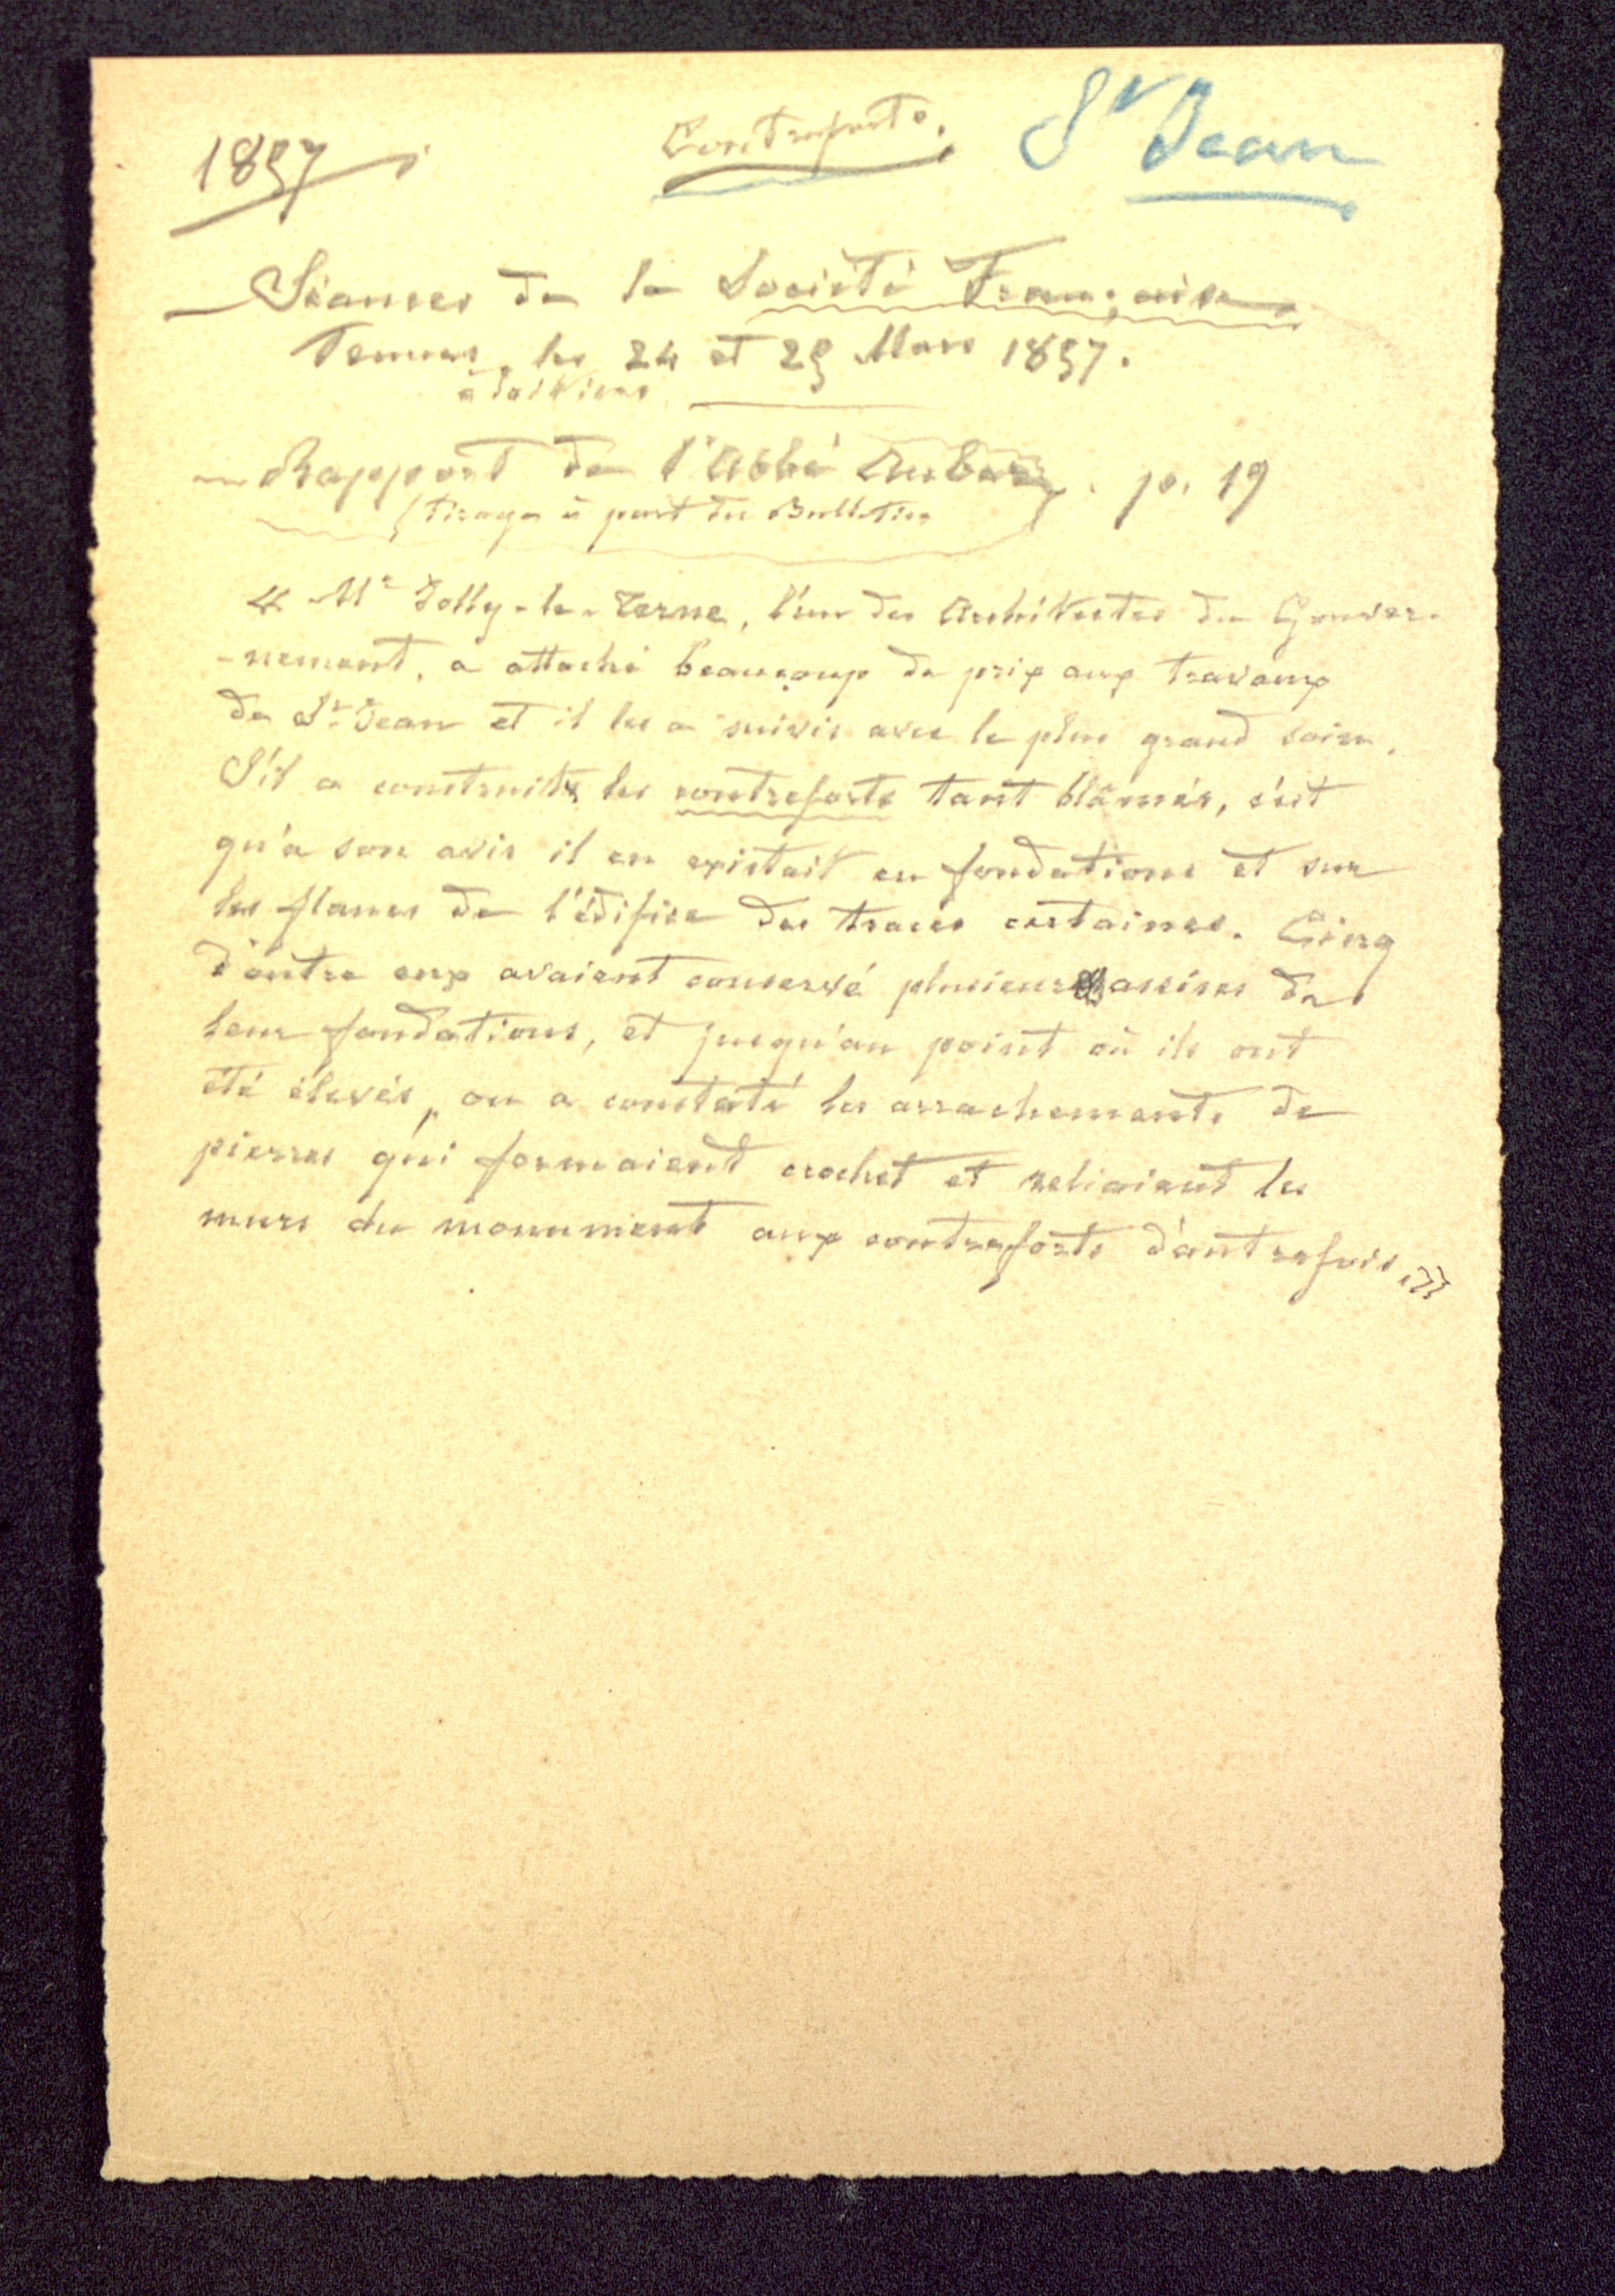 1857
Contreforts.
St Jean
Séances de la Société Française
Tenues les 24 et 25 Mars 1857.
à Poitiers
Rapport de l'Abbé Auber. p. 19
(Tirage à part du Bulletin
« Mr Jolly-le-Terne, l'un des Architectes du Gouver-
-nement, a attaché beaucoup de prix aux travaux
de St Jean et il les a suivis avec le plus grand soin.
S'il a construit les contreforts tant blâmés, c'est
qu'à son avis il en existait en fondations et sur
les flancs de l'édifice des traces certaines. Cinq
d'entre eux avaient conservé plusieurs assises de
leur fondations, et jusqu'au point où ils ont
été élevés, on a constaté les arrachements de
pierres qui formaient crochet et reliaient les
murs du monument aux contreforts d'autrefois. »